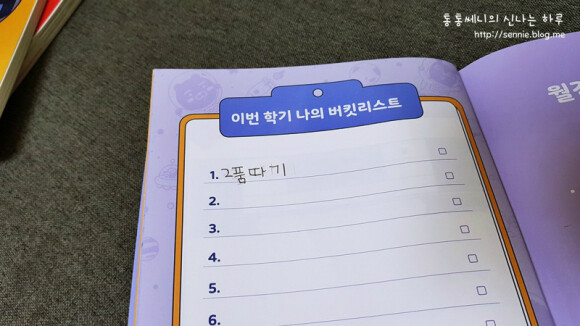 통통쎄니의 신나는 하루
http://sennie.blog.me
이번 학기 나의 버킷리스트
1. 2품따기
2.
3.
4.
5.
6.
월간